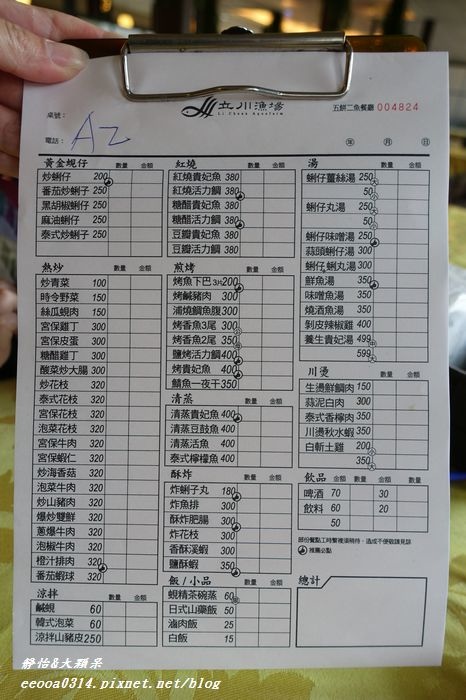 立川漁場
Li Chuan Aquafarm
五餅二魚餐廳 004824
桌號：
電話：
AZ
年 月 日
黃金蜆仔 數量 金額
炒蜊仔 200
番茄炒蜊子 250
黑胡椒蜊仔 250
麻油蜊仔 250
泰式炒蜊子 250
熱炒 數量 金額
炒青菜 100
時令野菜 150
絲瓜蜆肉 150
宮保雞丁 300
宮保皮蛋 300
糖醋雞丁 300
酸菜炒大腸 300
炒花枝 320
泰式花枝 320
宮保花枝 320
泡菜花枝 320
宮保牛肉 320
宮保蝦仁 320
炒海香菇 320
泡菜牛肉 320
炒山豬肉 320
爆炒雙鮮 320
蔥爆牛肉 320
泡椒牛肉 320
橙汁排肉 320
番茄蝦球 320
涼拌 數量 金額
鹹蜆 60
韓式泡菜 60
涼拌山豬皮 250
紅燒 數量 金額
紅燒貴妃魚 380
紅燒活力鯛 380
糖醋貴妃魚 380
糖醋活力鯛 380
豆瓣貴妃魚 380
豆瓣活力鯛 380
煎烤 數量 金額
烤魚下巴3片 200
烤鹹豬肉 300
蒲燒鯛魚腹 300
烤香魚3尾 300
烤香魚2尾 350
鹽烤活力鯛 400
烤貴妃魚 400
鯖魚一夜干 350
清蒸 數量 金額
清蒸貴妃魚 400
清蒸豆鼓魚 400
清蒸活魚 400
泰式檸檬魚 400
酥炸 數量 金額
炸蜊子丸 180
炸魚排 300
酥炸肥腸 300
炸花枝 300
香酥溪蝦 300
鹽酥蝦 350
飯/小品 數量 金額
蜆精茶碗蒸 60
日式山藥飯 50
滷肉飯 25
白飯 15
湯 數量 金額
蜊仔薑絲湯 250 大
50 小
蜊仔丸湯 250 大
50 小
蜊仔味噌湯 250
蒜頭蜊仔湯 300
蜊仔蜊丸湯 300
鮮魚湯 350
味噌魚湯 350
燒酒魚湯 350
剝皮辣椒雞 400
養生貴妃湯 499 中
599 大
川燙 數量 金額
生燙鮮鯛肉 150
蒜泥白肉 300
泰式香檸肉 350
川燙秋水蝦 350
白斬土雞 200 小
350 大
飲品 數量 金額
啤酒 70 30
飲料 60 20
50
部份餐點工時繁複須稍待，造成不便敬請見諒
推薦必點
總計
靜怡&大顆呆
eeooa0314.pixnet.net/blog